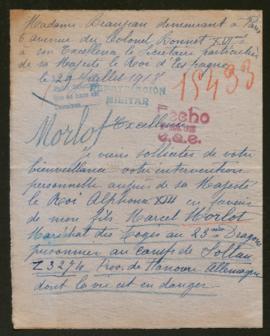 Madame Beaujean demeurant à Paris
6 avenue du Colonel Bonnet XVI
à son Excellence le Secrétaire particulier
de sa Majesté le Roi d'Espagne
le 29 Juillet 1918
15493
MILITAR
Hecho
Morlot Excellence
Je viens solliciter de votre
bienveillance votre intervention
personnelle auprès de sa Majesté
le Roi Alphonse XIII en faveur
de mon fils Marcel Morlot
Maréchal des Logis au 23 Dragons
prisonnier au camp de Soltau
Z 3274 Prov. de Hanovre Allemagne
dont la vie est en danger